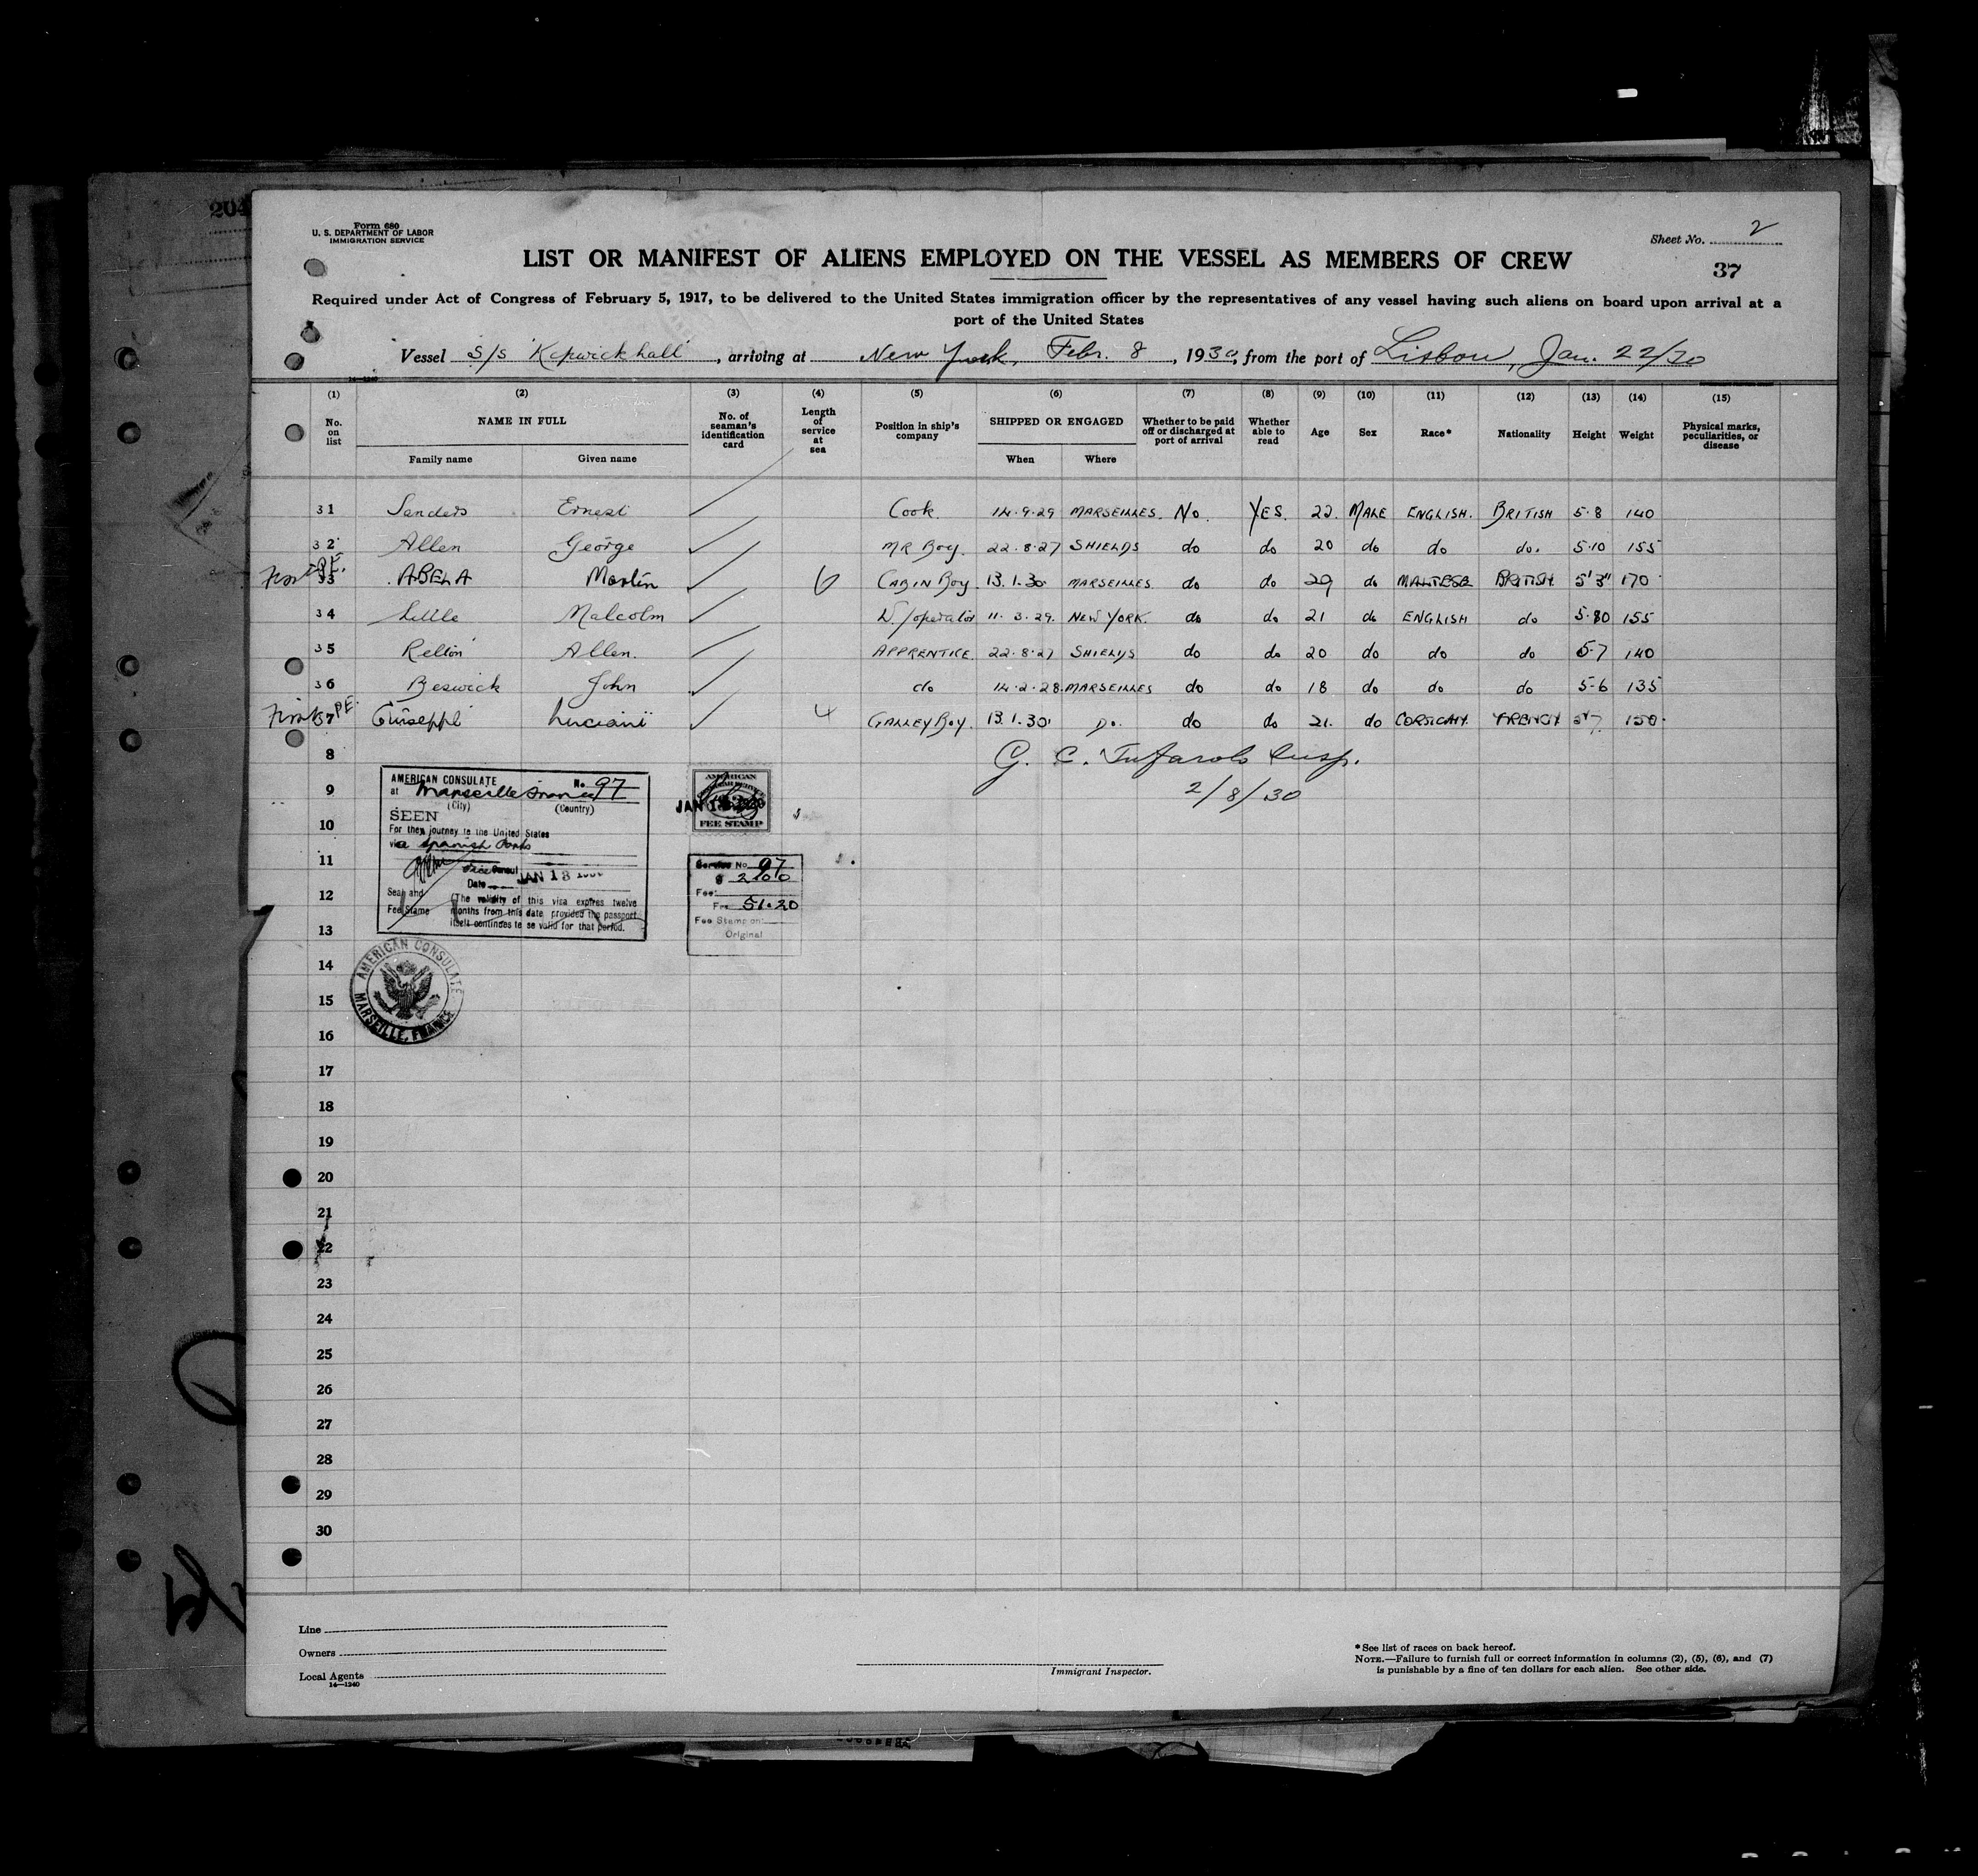 204
Form 680
U. S. DEPARTMENT OF LABOR
IMMIGRATION SERVICE
Sheet No. 2
37
LIST OR MANIFEST OF ALIENS EMPLOYED ON THE VESSEL AS MEMBERS OF CREW
Required under Act of Congress of February 5, 1917, to be delivered to the United States immigration officer by the representatives of any vessel having such aliens on board upon arrival at a
port of the United States
Vessel S/S 'Kepwickhall', arriving at New York, Febr. 8, 1930, from the port of Lisbon, Jan. 22/30
14-1240
(1) (2) (3) (4) (5) (6) (7) (8) (9) (10) (11) (12) (13) (14) (15)
No. on list NAME IN FULL No. of seaman's identification card Length of service at sea Position in ship's company SHIPPED OR ENGAGED Whether to be paid off or discharged at port of arrival Whether able to read Age Sex Race* Nationality Height Weight Physical marks, peculiarities, or disease
Family name Given name When Where
31 Sanders Ernest Cook. 14.9.29 MARSEILLES. No. YES. 22. MALE ENGLISH. BRITISH 5.8 140
32 Allen George MR Boy. 22.8.27 SHIELDS do do 20 do do do. 5.10 155
First P.E. 33 ABELA Martin 6 CABIN BOY 13.1.30 MARSEILLES do do 29 do MALTESE BRITISH 5'3" 170
34 Little Malcolm W/operator 11.3.29. NEW YORK. do do 21 do ENGLISH do 5.80 155
35 Relton Allen. APPRENTICE. 22.8.27 SHIELDS do do 20 do do do 5-7 140
36 Beswick John do 14.2.28. MARSEILLES do do 18 do do do 5-6 135
First P.E. 37 Guiseppi Lucianii 4 GALLEY BOY. 13.1.30 Do. do do 21. do CORSICAN. FRENCH 5'7 150
8 G. C. Insp.
9 2/8/30
10
11
12
13
14
15
16
17
18
19
20
21
22
23
24
25
26
27
28
29
30
AMERICAN CONSULATE No. 97
at Marseille France
(City) (Country)
SEEN
For the journey to the United States
via Spanish Ports
Vice Consul
Date JAN 13
Seal and
Fee Stamp
(The validity of this visa expires twelve
months from this date provided the passport
itself continues to be valid for that period.
AMERICAN
FEE STAMP
Service No. 97
$ 2.00
Fee:
Frs 51.20
Fee Stamp on
Original
AMERICAN CONSULATE
MARSEILLE, FRANCE
Line
Owners
Local Agents
14-1240
Immigrant Inspector.
*See list of races on back hereof.
NOTE.—Failure to furnish full or correct information in columns (2), (5), (6), and (7)
is punishable by a fine of ten dollars for each alien. See other side.